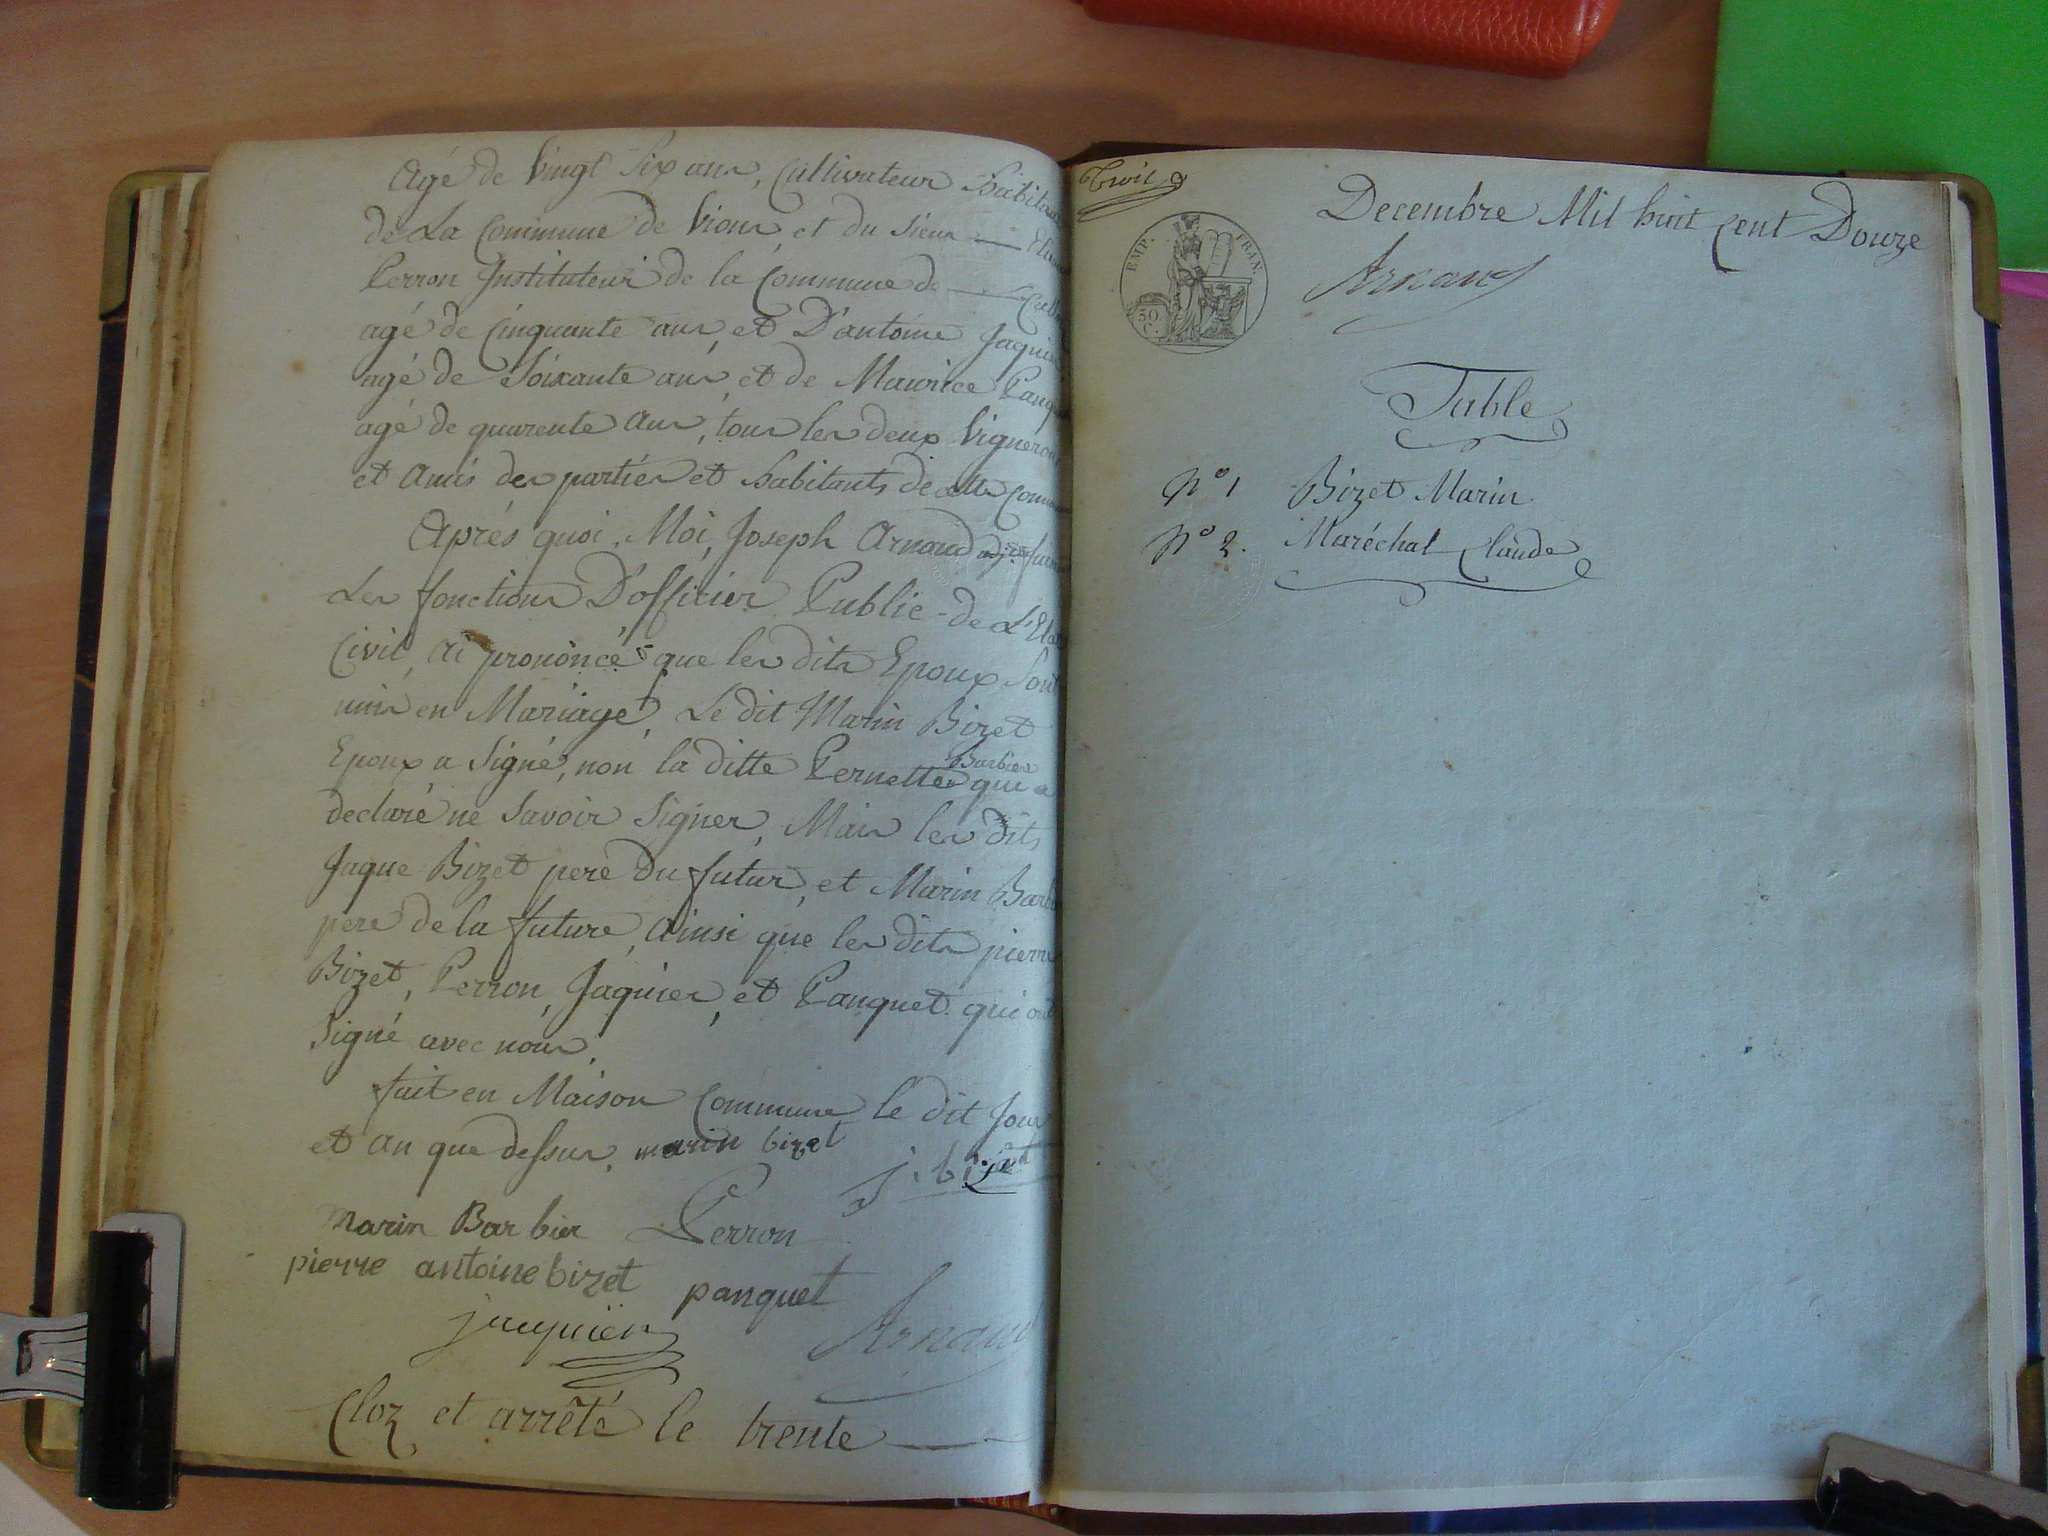 agé de vingt six ans, Cultivateur habitan
de La Commune de Vions, et du Sieur
Perron Instituteur de la Commune de
agé de Cinquante ans, et D'antoine Jaquier
agé de Soixante ans, et de Maurice Panqu
agé de quarente ans, tous les deux Vignerons
et amis des parties et habitants de cette Commu
Aprés quoi, Moi, Joseph Arnaud adjt faisan
Les fonctions D'officier Public de L'Etat
Civil, ai prononcé que les dits Epoux Sont
unis en Mariage, Le dit Marin Bizet
Epoux a Signé, non la ditte Pernette Barbier qui a
declaré ne Savoir Signer, Mais les dits
Jaque Bizet pere du futur, et Marin Barbi
pere de la future, ainsi que les dits pierre
Bizet, Perron, Jaquier, et Panquet qui ont
Signé avec nous.
fait en Maison Commune le dit Jour
et an que dessus. marin bizet
j. bizet
marin Barbier Perron
pierre antoine bizet panquet
jacquier Arnaud
Cloz et arrêté le trente
Trois
Decembre Mil huit Cent Douze
EMP. FRAN.
50. C.
Arnaud
Table
N° 1 Bizet Marin
N° 2. Maréchal Claude